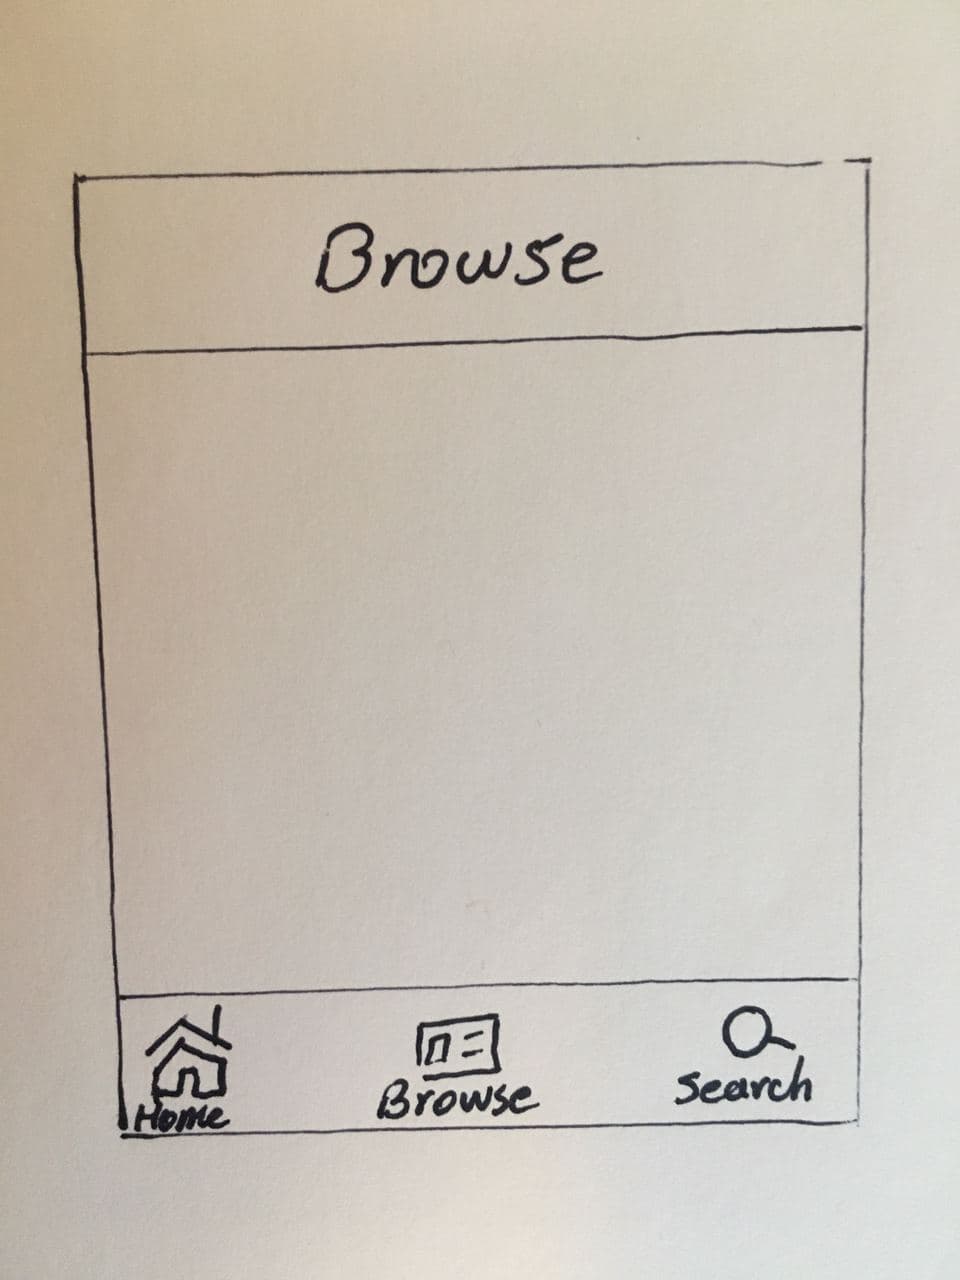 Browse
Home
Browse
Search